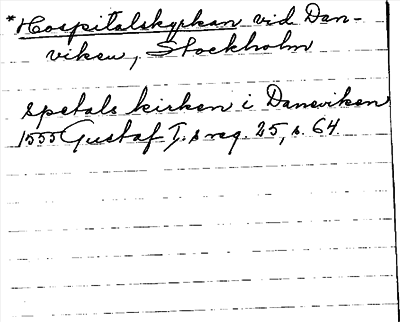 *Hospitalskyrkan vid Dan-
viken, Stockholm
spetals kirken i Danviken
1555 Gustaf I:s reg. 25, s. 64.